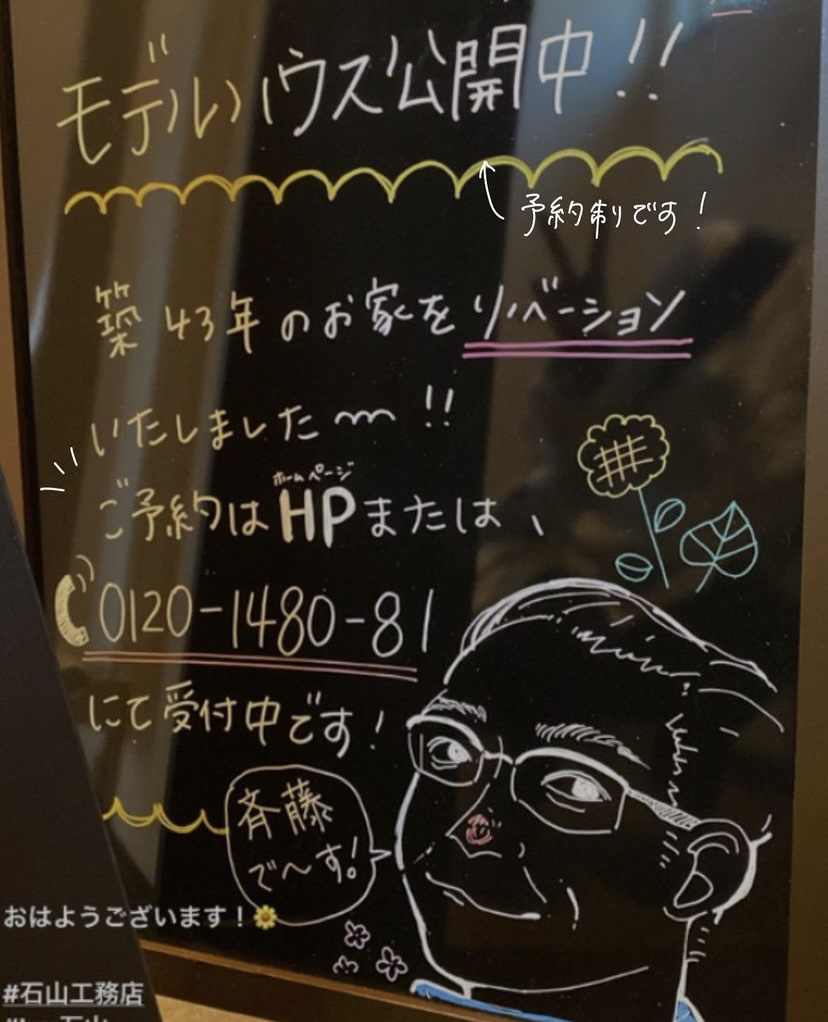 モデルハウス公開中!!
予約制です!
築43年のお家をリバーション
いたしました〜!!
ホームページ
ご予約はHPまたは、
0120-1480-81
にて受付中です!
斉藤
で〜す!
おはようございます!🌻
#石山工務店